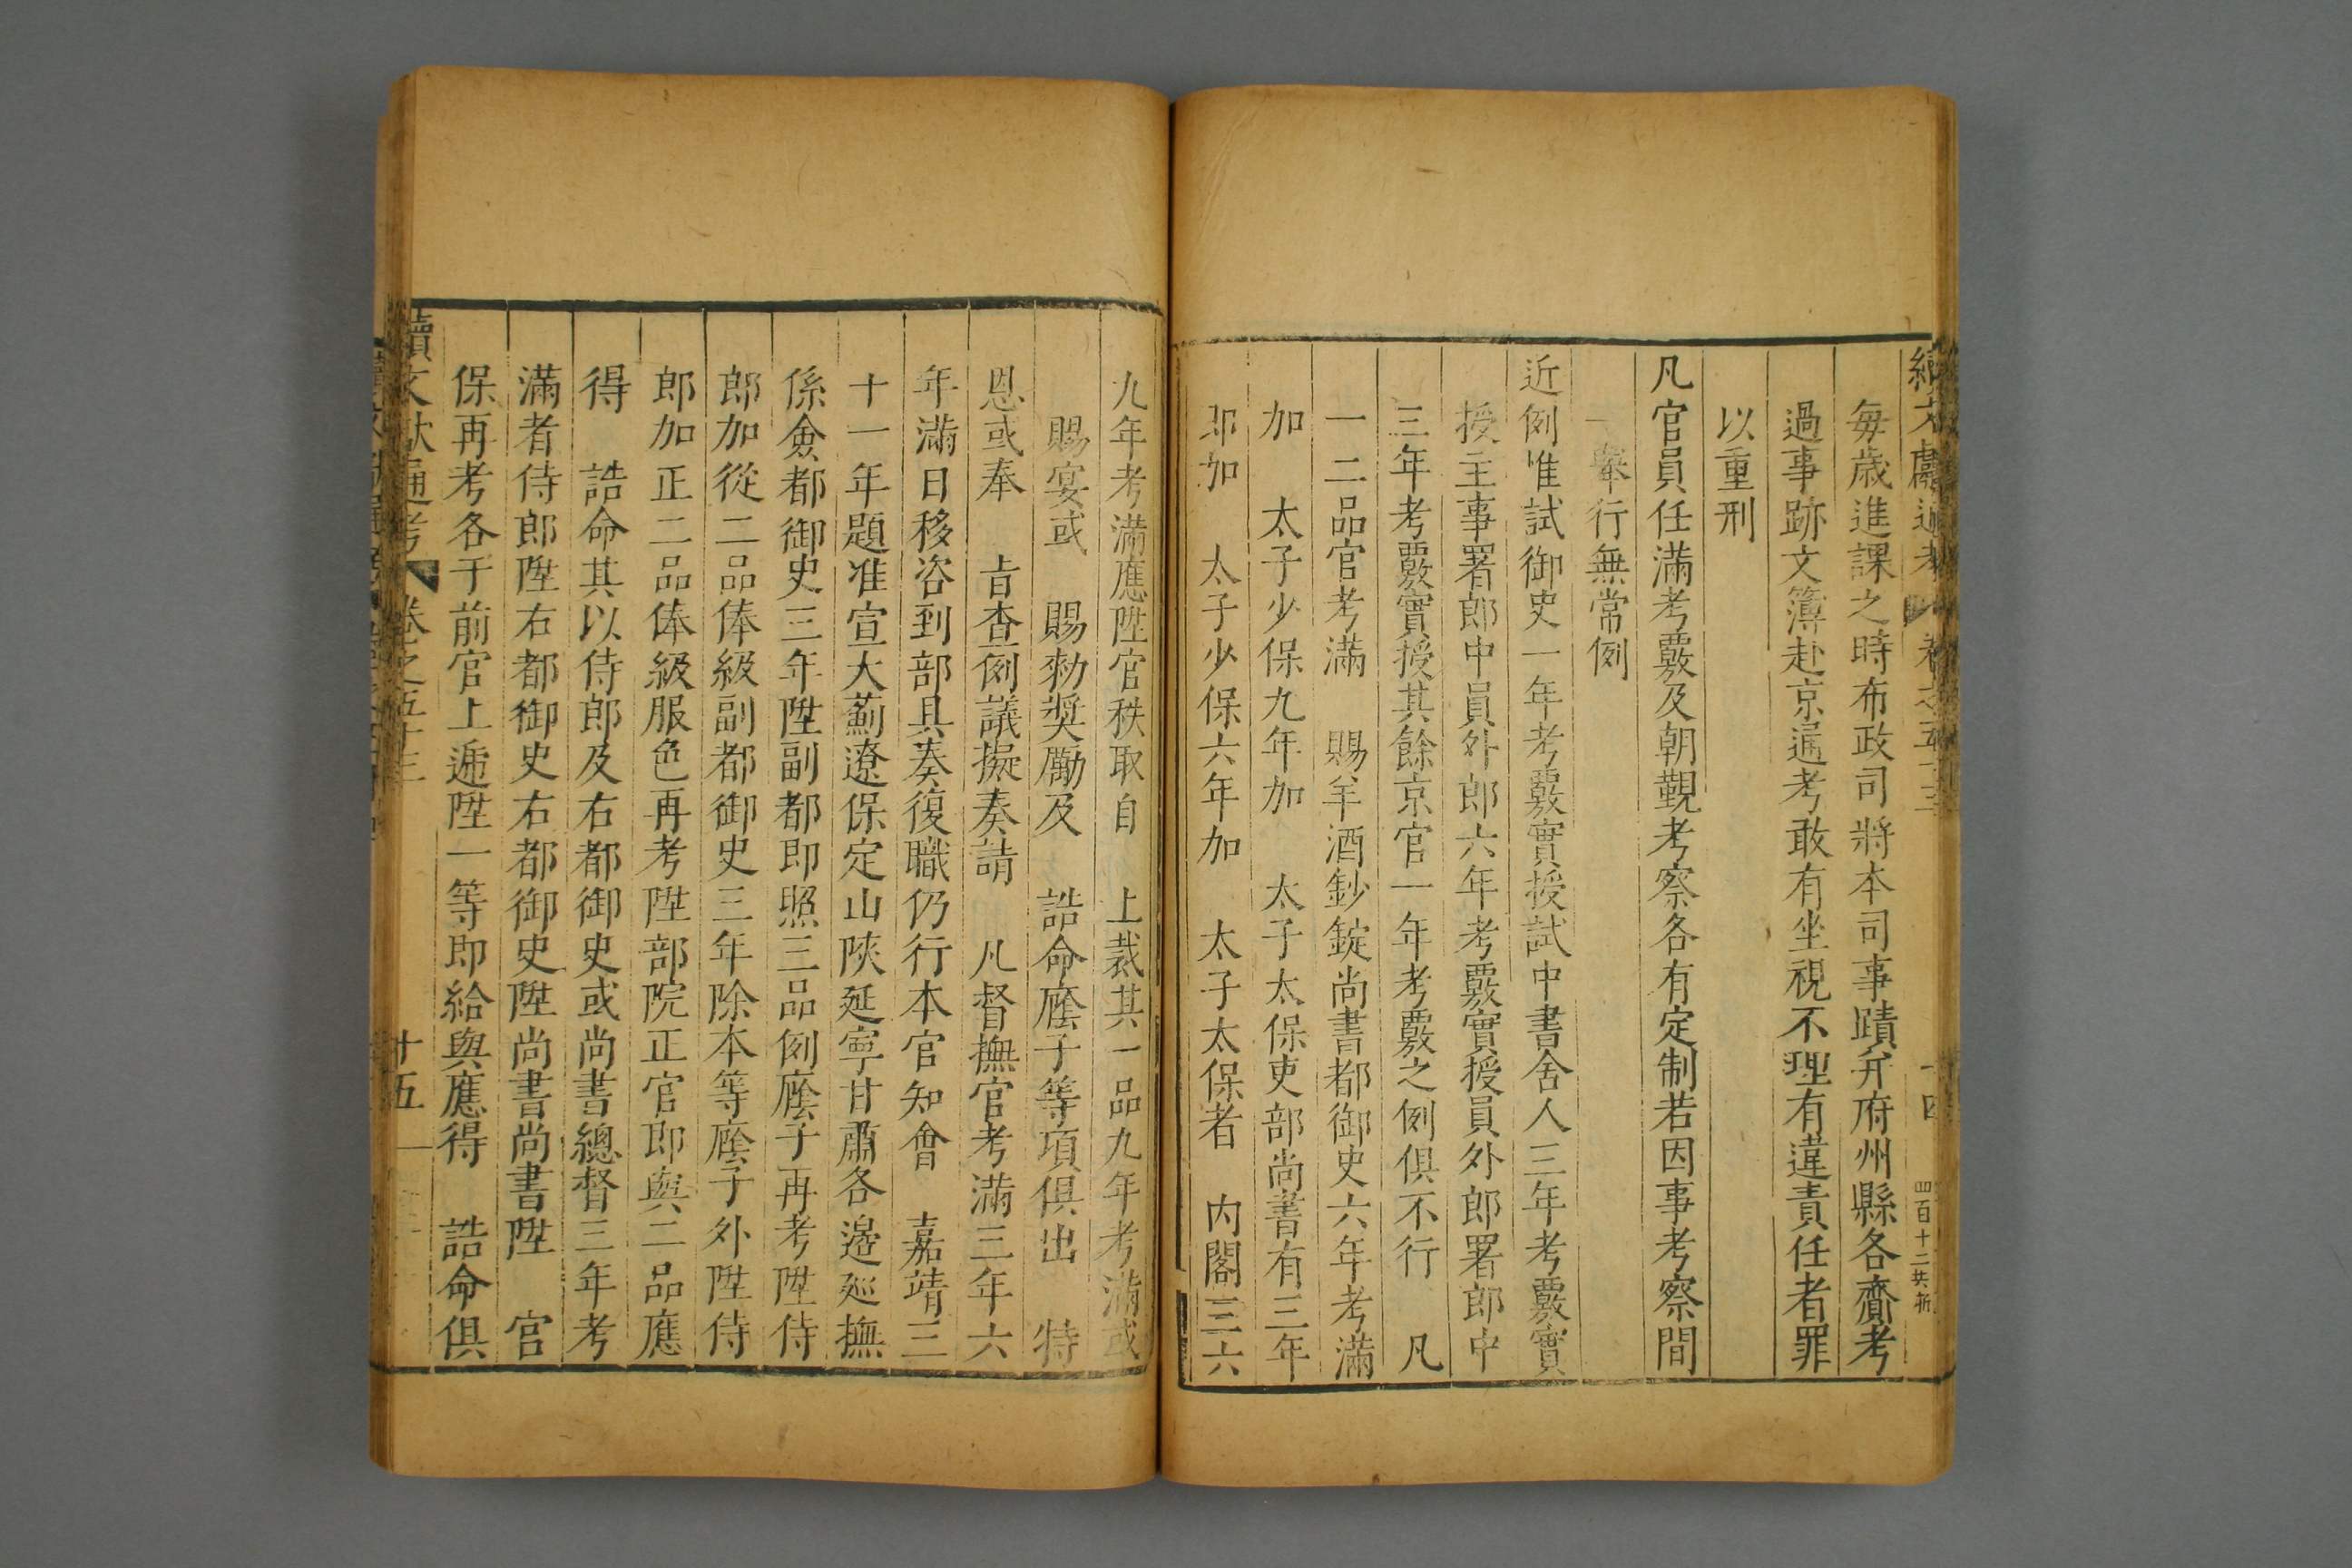 續文獻通考 卷之五十三 十四 四百十二
每歲進課之時布政司將本司事蹟并府州縣各齎考
過事跡文簿赴京通考敢有坐視不理有違責任者罪
以重刑
凡官員任滿考覈及朝覲考察各有定制若因事考察間
一舉行無常例
近例惟試御史一年考覈實授試中書舍人三年考覈實
授主事署郎中員外郎六年考覈實授員外郎署郎中
三年考覈實授其餘京官一年考覈之例俱不行 凡
一二品官考滿 賜羊酒鈔錠尚書都御史六年考滿
加 太子少保九年加 太子太保吏部尚書有三年
即加 太子少保六年加 太子太保者 內閣三六
九年考滿應陞官秩取自 上裁其一品九年考滿或
賜宴或 賜勑奬勵及 誥命廕子等項俱出 特
恩或奉 旨查例議擬奏請 凡督撫官考滿三年六
年滿日移咨到部具奏復職仍行本官知會 嘉靖三
十一年題准宣大薊遼保定山陝延寧甘肅各邊廵撫
係僉都御史三年陞副都即照三品例廕子再考陞侍
郎加從二品俸級副都御史三年除本等廕子外陞侍
郎加正二品俸級服色再考陞部院正官即與二品應
得 誥命其以侍郎及右都御史或尚書總督三年考
滿者侍郎陞右都御史右都御史陞尚書尚書陞 宮
保再考各于前官上遞陞一等即給與應得 誥命俱
續文獻通考 卷之五十三 十五